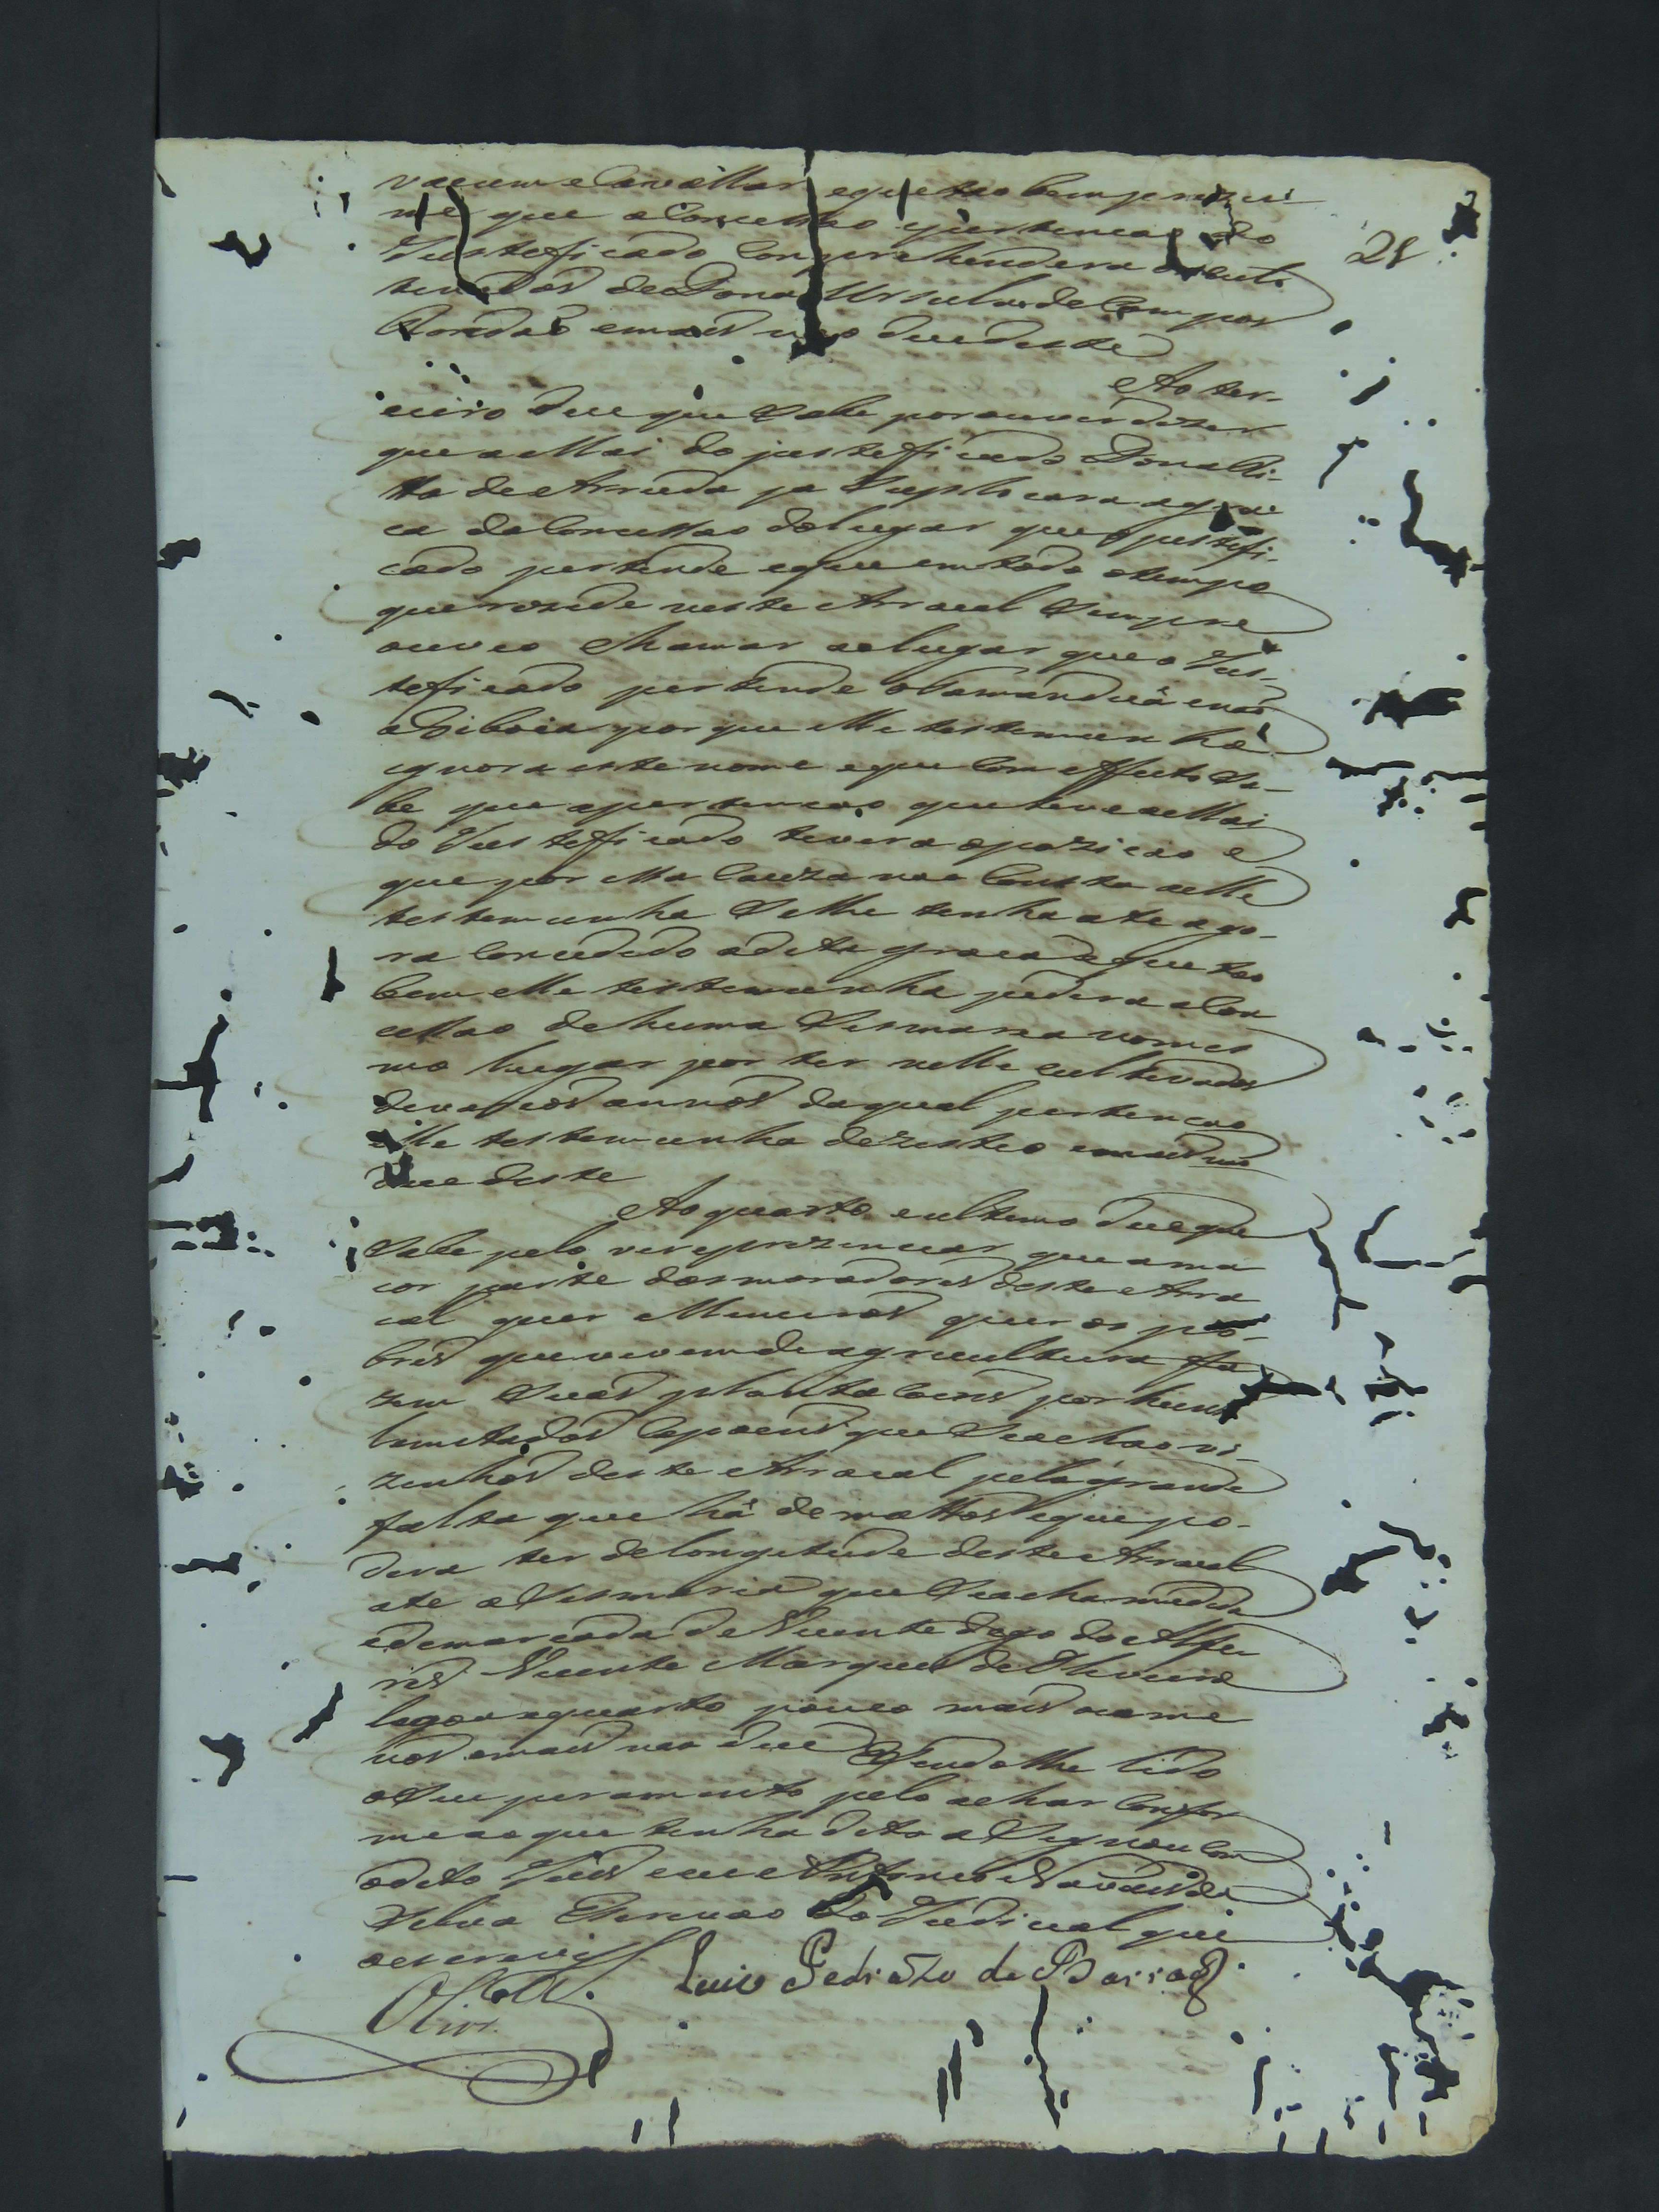 vacum e Cavallar e que tao bem prezu
me que a Concessao pertencao do
Justeficado Comprehendera os culti
vados de Dona Ursula de Campos
e mais nao dice deste
Ao ter-
ceiro dice que Sabe por ouver dezer
que a Mai do justeficado Dona Ri-
ta de Arruda ja Suplicara a gra
ca da Concessao do lugar que o justefi-
cado pertende e que em todo o tempo
que rezide neste Arraeal Sempre
ouveo chamar ao lugar que o Jus-
teficado pertende o Tamanduá e nao
a Giboia por que elle testemunha
ignora este nome e que Com effeito Sa-
be que a pertencao que teve a Mai
do Justeficado tivera opozicao e
que por essa Cauza nao Consta a elle
testemunha Selhe tenha ate ago-
ra Concedido a dita graca e que tao
bem elle testemunha pedira a Con
cessao de huma Sismaria no mes
mo lugar por ter nelle cultivados
de varios annos da qual pertencao
elle testemunha dezesteo e mais nao
dice deste
Ao quarto e ultimo dice que
Sabe pelo ver e prezenciar que a ma
ior parte dos moradores deste Arra
eal quer Mineiros quer os po-
bres que vivem de agricultura fa
zem Suas plantacoens por huns
limitados Capoens que Se achao vi-
zinhos deste Arraeal pela grande
falta que há de mattos e que po-
dera ter de longetude deste Arraeal
ate a Sismaria que Se acha medida
e demarcada de Vicente digo do Alfe
res Vicente Marques de Oliveira
legoa e quarto pouco mais ou me
nos e mais nao dice E Sendo lhe lido
o Seu juramento pelo achar Confor
me ao que tinha dito a Signou Com
o dito Juis e eu Antonio Navaes da
Silva Escrivao do Judicial que
o escrevi
Luis Pedrozo de Barros
Olivr.ª
28